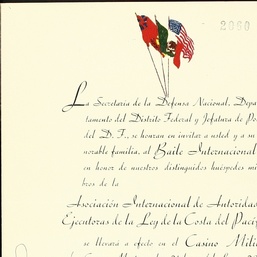 2060
La Secretaría de la Defensa Nacional, Depa
tamento del Distrito Federal y Jefatura de Po
del D. F., se honran en invitar a usted y a su
norable familia, al Baile Internacional
en honor de nuestros distinguidos huéspedes mi
bros de la
Asociación Internacional de Autoridad
Ejecutoras de la Ley de la Costa del Pací
se llevará a efecto en el Casino Mili